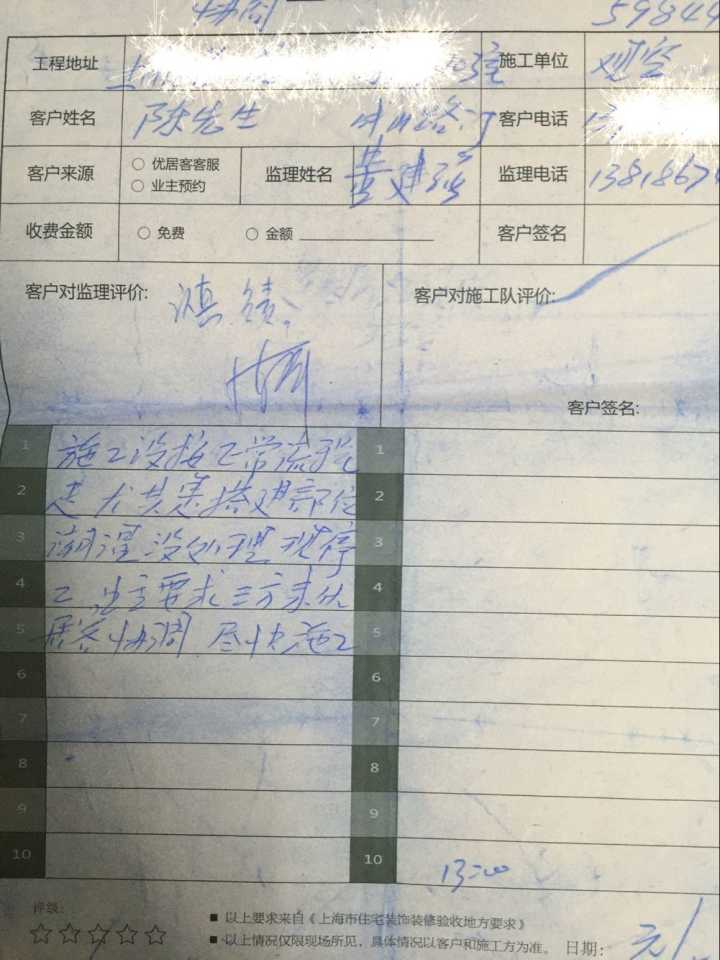 协调 59844
工程地址 施工单位
客户姓名 陈先生 客户电话
客户来源 优居客客服 业主预约 监理姓名 黄建强 监理电话 1381867
收费金额 免费 金额 客户签名
客户对监理评价: 客户对施工队评价:
协调
客户签名:
1 施工没按正常流程 1
2 走尤其是搭建部位 2
3 没处理 现停 3
4 工,业主要求三方来优 4
5 居客协调 尽快施工 5
6 6
7 7
8 8
9 9
10 10 13:00
评级: ■ 以上要求来自《上海市住宅装饰装修验收地方要求》
☆☆☆☆☆ ■ 以上情况仅限现场所见，具体情况以客户和施工方为准。 日期: